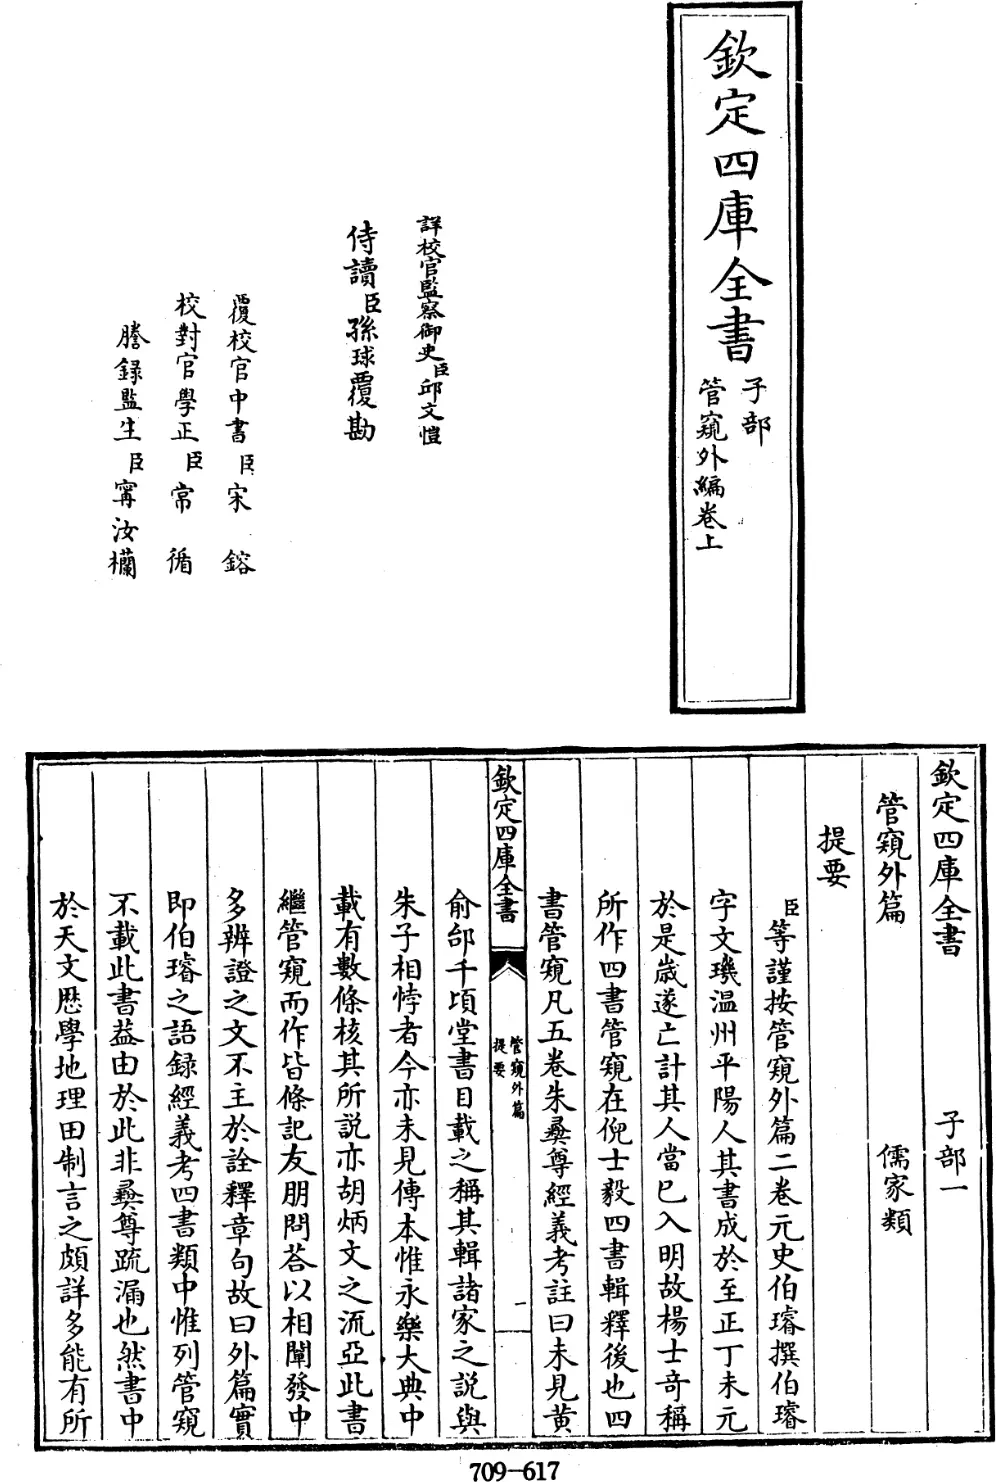 欽定四庫全書
子部
管窺外編卷上
詳校官監察御史臣邱文愷
侍讀臣孫球覆勘
覆校官中書臣宋鎔
校對官學正臣常循
謄錄監生臣甯汝欄
欽定四庫全書 子部一
管窺外篇 儒家類
提要
臣等謹按管窺外篇二卷元史伯璿撰伯璿
字文璣温州平陽人其書成於至正丁未元
於是歲遂亡計其人當已入明故楊士奇稱
所作四書管窺在倪士毅四書輯釋後也四
書管窺凡五卷朱彝尊經義考註曰未見黄
欽定四庫全書
管窺外篇
提要
一
俞邰千頃堂書目載之稱其輯諸家之説與
朱子相悖者今亦未見傳本惟永樂大典中
載有數條核其所説亦胡炳文之流亞此書
繼管窺而作皆條記友朋問荅以相闡發中
多辨證之文不主於詮釋章句故曰外篇實
即伯璿之語録經義考四書類中惟列管窺
不載此書葢由於此非彝尊疏漏也然書中
於天文歴學地理田制言之頗詳多能有所
709-617